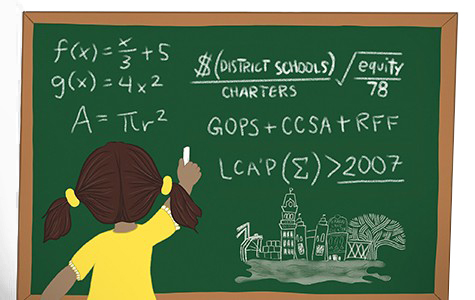 f(x) = x/3 + 5
g(x) = 4x2
A = πr²
$(DISTRICT SCHOOLS)/CHARTERS √equity/78
GOPS + CCSA + RFF
LCAP(Σ) > 2007